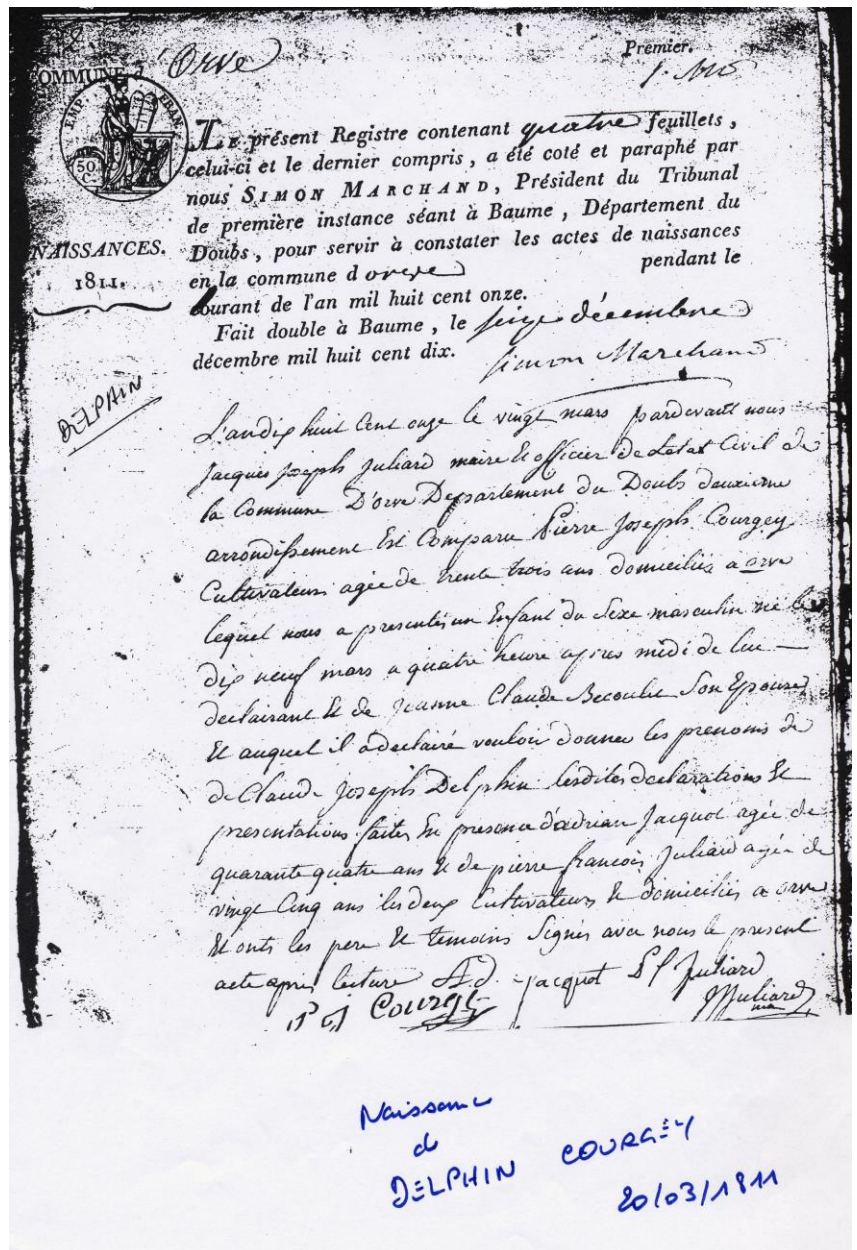 COMMUNE d'Orve
Premier.
EMP. FRAN
50
C.
NAISSANCES.
1811.
LE présent Registre contenant quatre feuillets,
celui-ci et le dernier compris, a été coté et paraphé par
nous SIMON MARCHAND, Président du Tribunal
de première instance séant à Baume, Département du
Doubs, pour servir à constater les actes de naissances
en la commune d orve pendant le
courant de l'an mil huit cent onze.
Fait double à Baume, le seize décembre
décembre mil huit cent dix.
Simon Marchand
DELPHIN
L'an dix huit Cent onze le vingt mars pardevant nous
Jacques Joseph Juliard maire Et officier de Letat Civil de
la Commune D'orve Departement du Doubs deuxieme
arrondissement Est Comparu Pierre Joseph Courgey
Cultivateur agée de trente trois ans domicilies a orve
lequel nous a presentés un Enfant du Sexe masculin né le
dix neuf mars a quatre heure apres midi de lui
declairant Et de Jeanne Claude Becoulet Son Epouse
Et auquel il a declairé vouloir donner les prenoms de
de Claude joseph Delphin lesdites declarations Et
presentations faites En presence d'adrian Jacquot agée de
quarante quatre ans Et de pierre francois Juliard agée de
vingt Cinq ans les deux Cultivateurs Et domicilies a orve
Et onts les pere Et temoins Signés avec nous le present
acte apres lecture Ad. jacquot P f Juliard
P J Courgey JJuliard
Naissance
de
DELPHIN COURGEY
20/03/1811